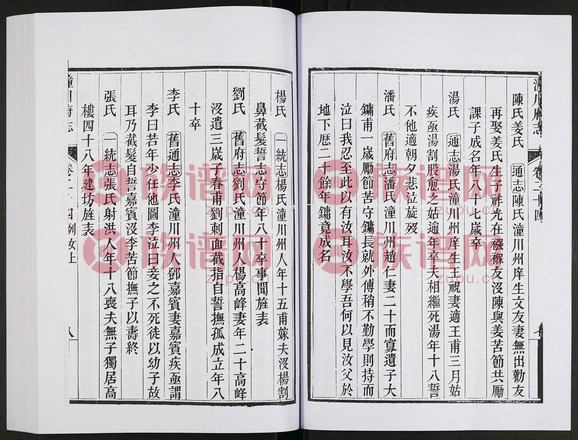 陳氏姜氏 通志陳氏潼川州庠生文友妻無出勸友
再娶姜氏生子祥光在襁褓友沒陳與姜苦節共勵
課子成名年八十七歲卒
湯氏 通志湯氏潼川州庠生王覞妻適王甫三月姑
疾亟湯割股愈之姑逾年卒夫相繼死湯年十八誓
不他適朝夕悲泣旋歿
潘氏 舊府志潘氏潼川州趙仁妻二十而寡遺子大
鏞甫一歲勵節苦守鏞長就外傅稍不勤學則持而
泣曰我忍至此以有汝耳汝不學吾何以見汝父於
地下歷二十餘年鏞竟成名
潼川府志
卷二十四 列女上
八
楊氏 一統志楊氏潼川州人年十五甫嫁夫沒楊割
鼻截髮誓志守節年八十卒事聞旌表
劉氏 舊府志劉氏潼川州人楊高峰妻年二十高峰
沒遺三歲子春甫劉刺面截指自誓撫孤成立年八
十卒
李氏 舊通志李氏潼川州人鄧嘉賓妻嘉賓疾亟謂
李曰若年少任他圖李泣曰妾之不死徒以幼子故
耳乃截髮自誓嘉賓沒李苦節撫子以壽終
張氏 一統志張氏射洪人年十八喪夫無子獨居高
樓四十八年建坊旌表
族譜网